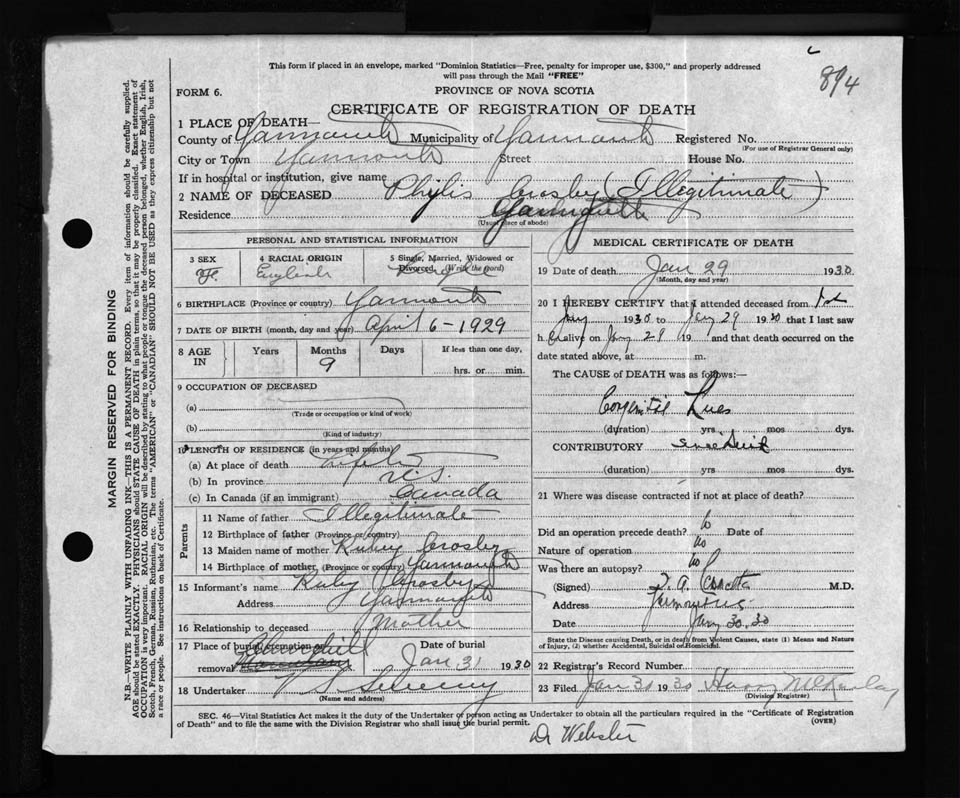 894
This form if placed in an envelope, marked "Dominion Statistics—Free, penalty for improper use, $300," and properly addressed
will pass through the Mail "FREE"
FORM 6.
PROVINCE OF NOVA SCOTIA
CERTIFICATE OF REGISTRATION OF DEATH
1 PLACE OF DEATH—
County of Yarmouth Municipality of Yarmouth Registered No.
(For use of Registrar General only)
City or Town Yarmouth Street House No.
If in hospital or institution, give name
2 NAME OF DECEASED Phylis Crosby (Illegitimate)
Residence Yarmouth
(Usual place of abode)
PERSONAL AND STATISTICAL INFORMATION
3 SEX F. 4 RACIAL ORIGIN English 5 Single, Married, Widowed or Divorced. (Write the word) Single
6 BIRTHPLACE (Province or country) Yarmouth
7 DATE OF BIRTH (month, day and year) April 6 - 1929
8 AGE IN Years Months 9 Days If less than one day, hrs. or min.
9 OCCUPATION OF DECEASED
(a)
(Trade or occupation or kind of work)
(b)
(Kind of industry)
10 LENGTH OF RESIDENCE (in years and months)
(a) At place of death Life
(b) In province N.S.
(c) In Canada (if an immigrant) Canada
Parents
11 Name of father Illegitimate
12 Birthplace of father (Province or country)
13 Maiden name of mother Ruby Crosby
14 Birthplace of mother (Province or country) Yarmouth
15 Informant's name Ruby Crosby
Address Yarmouth
16 Relationship to deceased Mother
17 Place of burial, cremation or removal Date of burial Jan 31 1930
18 Undertaker V S Sweeny
(Name and address)
MEDICAL CERTIFICATE OF DEATH
19 Date of death Jan 29 1930
(Month, day and year)
20 I HEREBY CERTIFY that I attended deceased from 1st
Jany 1930 to Jany 29 1930 that I last saw
her alive on Jany 28 19 and that death occurred on the
date stated above, at m.
The CAUSE OF DEATH was as follows:—
Congenital Lues
(duration) yrs mos dys.
CONTRIBUTORY
(duration) yrs mos dys.
21 Where was disease contracted if not at place of death?
Did an operation precede death? No Date of
Nature of operation No
Was there an autopsy? No
(Signed) M.D.
Address Yarmouth N.S.
Date Jany 30, 30
State the Disease causing Death, or in death from Violent Causes, state (1) Means and Nature
of Injury, (2) whether Accidental, Suicidal or Homicidal.
22 Registrar's Record Number
23 Filed Jan 30 1930 Harry McKinlay
(Division Registrar)
SEC. 46—Vital Statistics Act makes it the duty of the Undertaker or person acting as Undertaker to obtain all the particulars required in the "Certificate of Registration
of Death" and to file the same with the Division Registrar who shall issue the burial permit. (OVER)
Dr Webster
MARGIN RESERVED FOR BINDING
N.B.—WRITE PLAINLY WITH UNFADING INK—THIS IS A PERMANENT RECORD. Every item of information should be carefully supplied.
AGE should be stated EXACTLY. PHYSICIANS should STATE CAUSE OF DEATH in plain terms, so that it may be properly classified. Exact statement of
OCCUPATION is very important. RACIAL ORIGIN will be described by stating to what people or tongue the deceased person belonged, whether English, Irish,
Scotch, French, German, Russian, Ruthenian, etc. The terms "AMERICAN" or "CANADIAN" SHOULD NOT BE USED as they express citizenship but not
a race or people. See instructions on back of Certificate.